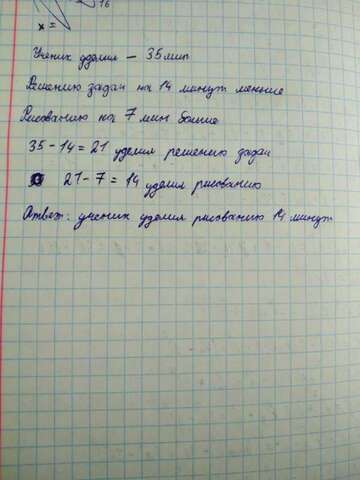 16
x =
Ученик уделил — 35 мин
Решению задач на 14 минут меньше
Рисованию на 7 мин больше
35 - 14 = 21 уделил решению задач
21 - 7 = 14 уделил рисованию
Ответ: ученик уделил рисованию 14 минут